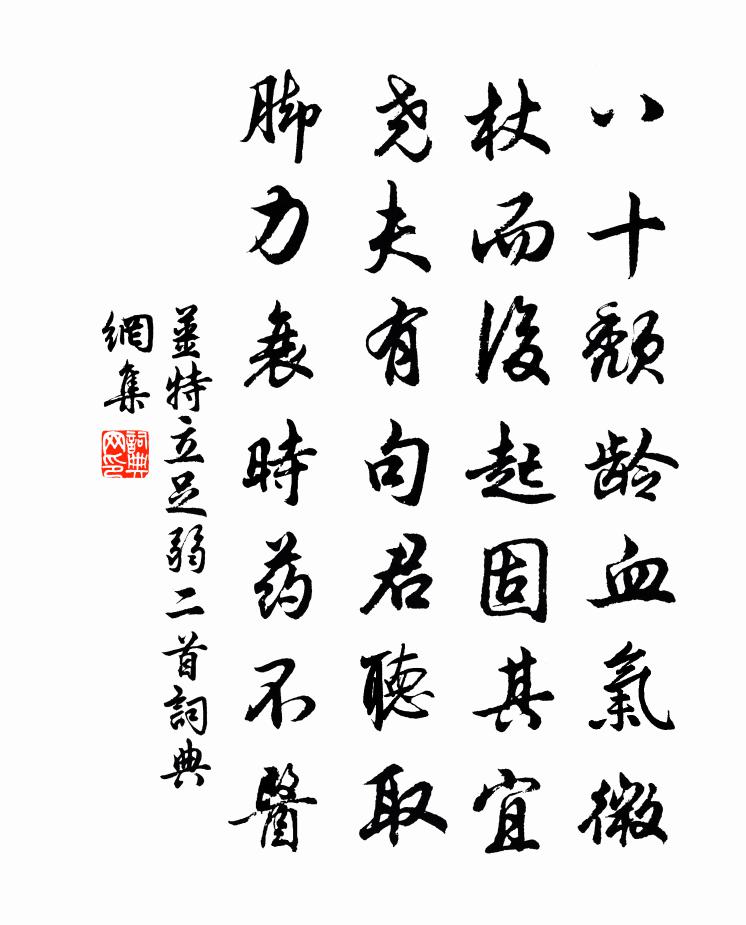 八十頹齡血氣微
杖而後起固其宜
堯夫有句君聽取
脚力衰時药不醫
薑特立足弱二首詞典
網集
詞典
网印